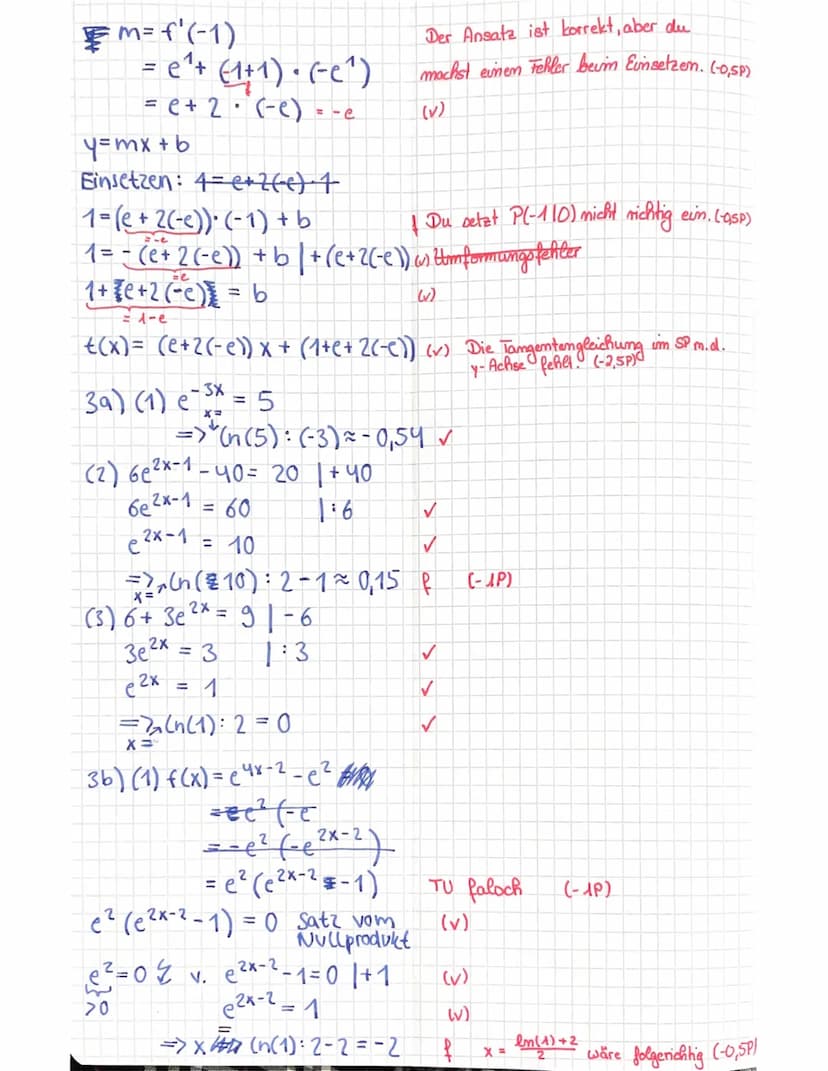 m = f'(-1)
Der Ansatz ist korrekt, aber du
= e¹ + (-1+1) · (-e¹)
machst einen Fehler beim Einsetzen. (-0,5P)
= e + 2 · (-e) = -e (v)
y = mx + b
Einsetzen: 1 = e+2(-e)·1
1 = (e + 2(-e)) · (-1) + b f Du setzt P(-1|0) nicht richtig ein. (-0,5P)
= -e
1 = -(e + 2(-e)) + b | +(e+2(-e)) (v) Umformungsfehler
= e
1 + (e+2(-e)) = b (v)
= 1-e
t(x) = (e+2(-e)) x + (1+e+2(-e)) (v) Die Tangentengleichung im SP m.d.
y-Achse fehlt. (-2,5P)
3a) (1) e^-3x = 5
x=
=> ln(5) : (-3) ≈ -0,54 ✓
(2) 6e^2x-1 - 40 = 20 | +40
6e^2x-1 = 60 | :6 ✓
e^2x-1 = 10 ✓
=> ln(10) : 2 - 1 ≈ 0,15 f (-1P)
x=
(3) 6 + 3e^2x = 9 | -6
3e^2x = 3 | :3 ✓
e^2x = 1 ✓
=> ln(1) : 2 = 0 ✓
x=
3b) (1) f(x) = e^4x-2 - e²
= e² (-e
= -e² (-e^2x-2)
= e² (e^2x-2 - 1) TU falsch (-1P)
e² (e^2x-2 - 1) = 0 Satz vom (v)
Nullprodukt
e² = 0 ↯ v. e^2x-2 - 1 = 0 | +1 (v)
>0 e^2x-2 = 1 (v)
=> x = ln(1) : 2 - 2 = -2 f x = ln(1)+2 / 2 wäre folgerichtig (-0,5P)